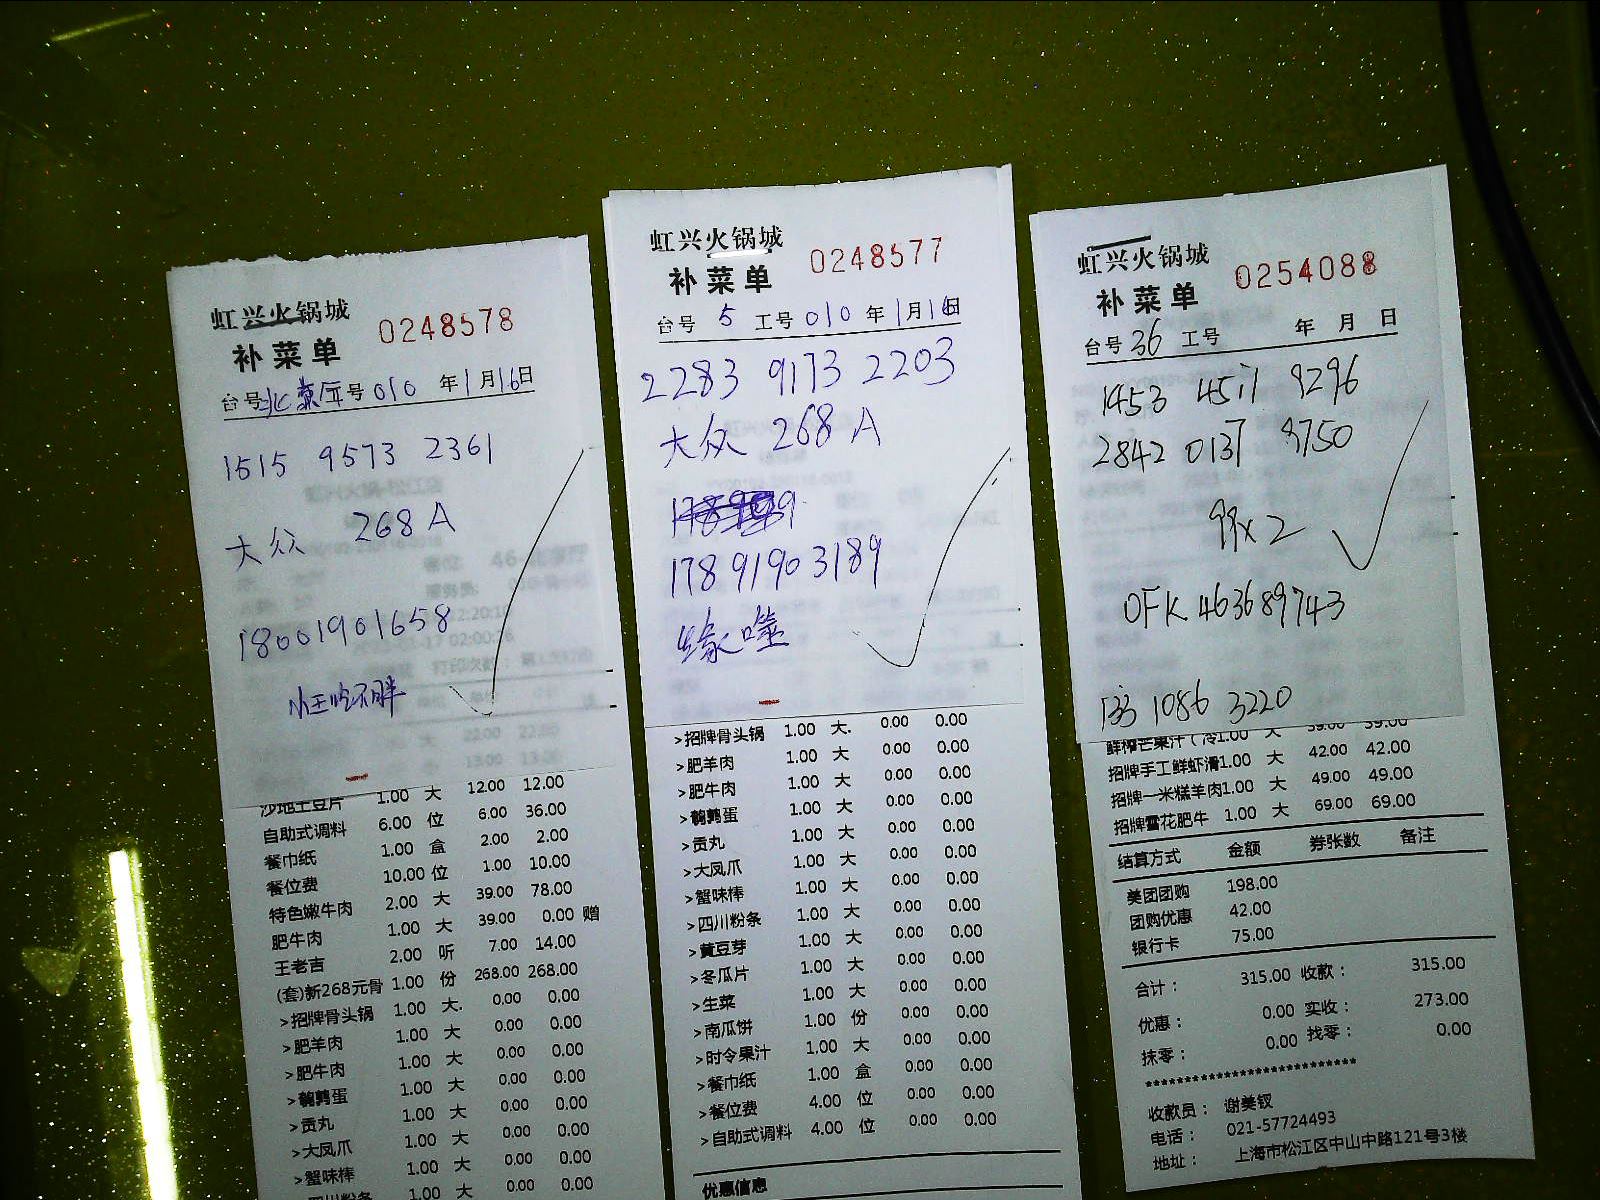 虹兴火锅城
补菜单 0248578
台号 工号 010 年1月16日
1515 9573 2361
大众 268A
18001901658
小王吃不胖
沙地土豆片 1.00 大 12.00 12.00
自助式调料 6.00 位 6.00 36.00
餐巾纸 1.00 盒 2.00 2.00
餐位费 10.00 位 1.00 10.00
特色嫩牛肉 2.00 大 39.00 78.00
肥牛肉 1.00 大 39.00 0.00 赠
王老吉 2.00 听 7.00 14.00
(套)新268元骨 1.00 份 268.00 268.00
>招牌骨头锅 1.00 大. 0.00 0.00
>肥羊肉 1.00 大 0.00 0.00
>肥牛肉 1.00 大 0.00 0.00
>鹌鹑蛋 1.00 大 0.00 0.00
>贡丸 1.00 大 0.00 0.00
>大凤爪 1.00 大 0.00 0.00
>蟹味棒 1.00 大 0.00 0.00
>四川粉条 1.00 大 0.00 0.00
虹兴火锅城
补菜单 0248577
台号 5 工号 010 年1月16日
2283 9173 2203
大众 268A
17891903189
缘
>招牌骨头锅 1.00 大. 0.00 0.00
>肥羊肉 1.00 大 0.00 0.00
>肥牛肉 1.00 大 0.00 0.00
>鹌鹑蛋 1.00 大 0.00 0.00
>贡丸 1.00 大 0.00 0.00
>大凤爪 1.00 大 0.00 0.00
>蟹味棒 1.00 大 0.00 0.00
>四川粉条 1.00 大 0.00 0.00
>黄豆芽 1.00 大 0.00 0.00
>冬瓜片 1.00 大 0.00 0.00
>生菜 1.00 大 0.00 0.00
>南瓜饼 1.00 份 0.00 0.00
>时令果汁 1.00 大 0.00 0.00
>餐巾纸 1.00 盒 0.00 0.00
>餐位费 4.00 位 0.00 0.00
>自助式调料 4.00 位 0.00 0.00
优惠信息
虹兴火锅城
补菜单 0254088
台号 36 工号 年 月 日
1453 4511 9296
2842 0137 9750
99x2
OFK 463689743
133 1086 3220
鲜榨芒果汁(冷1.00 大 39.00 39.00
招牌手工鲜虾滑1.00 大 42.00 42.00
招牌一米糕羊肉1.00 大 49.00 49.00
招牌雪花肥牛 1.00 大 69.00 69.00
结算方式 金额 券张数 备注
美团团购 198.00
团购优惠 42.00
银行卡 75.00
合计: 315.00 收款: 315.00
优惠: 0.00 实收: 273.00
抹零: 0.00 找零: 0.00
**************************
收款员: 谢美钗
电话: 021-57724493
地址: 上海市松江区中山中路121号3楼